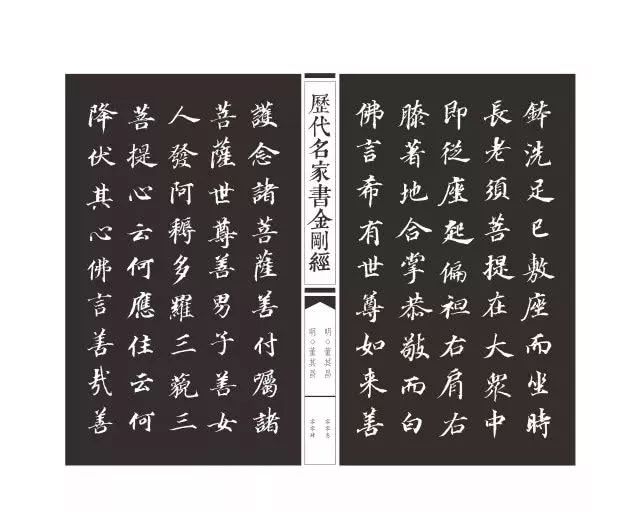 鉢洗足已敷座而坐時
長老須菩提在大眾中
即從座起偏袒右肩右
膝著地合掌恭敬而白
佛言希有世尊如來善
歷代名家書金剛經
明○董其昌
明○董其昌
護念諸菩薩善付囑諸
菩薩世尊善男子善女
人發阿耨多羅三藐三
菩提心云何應住云何
降伏其心佛言善哉善